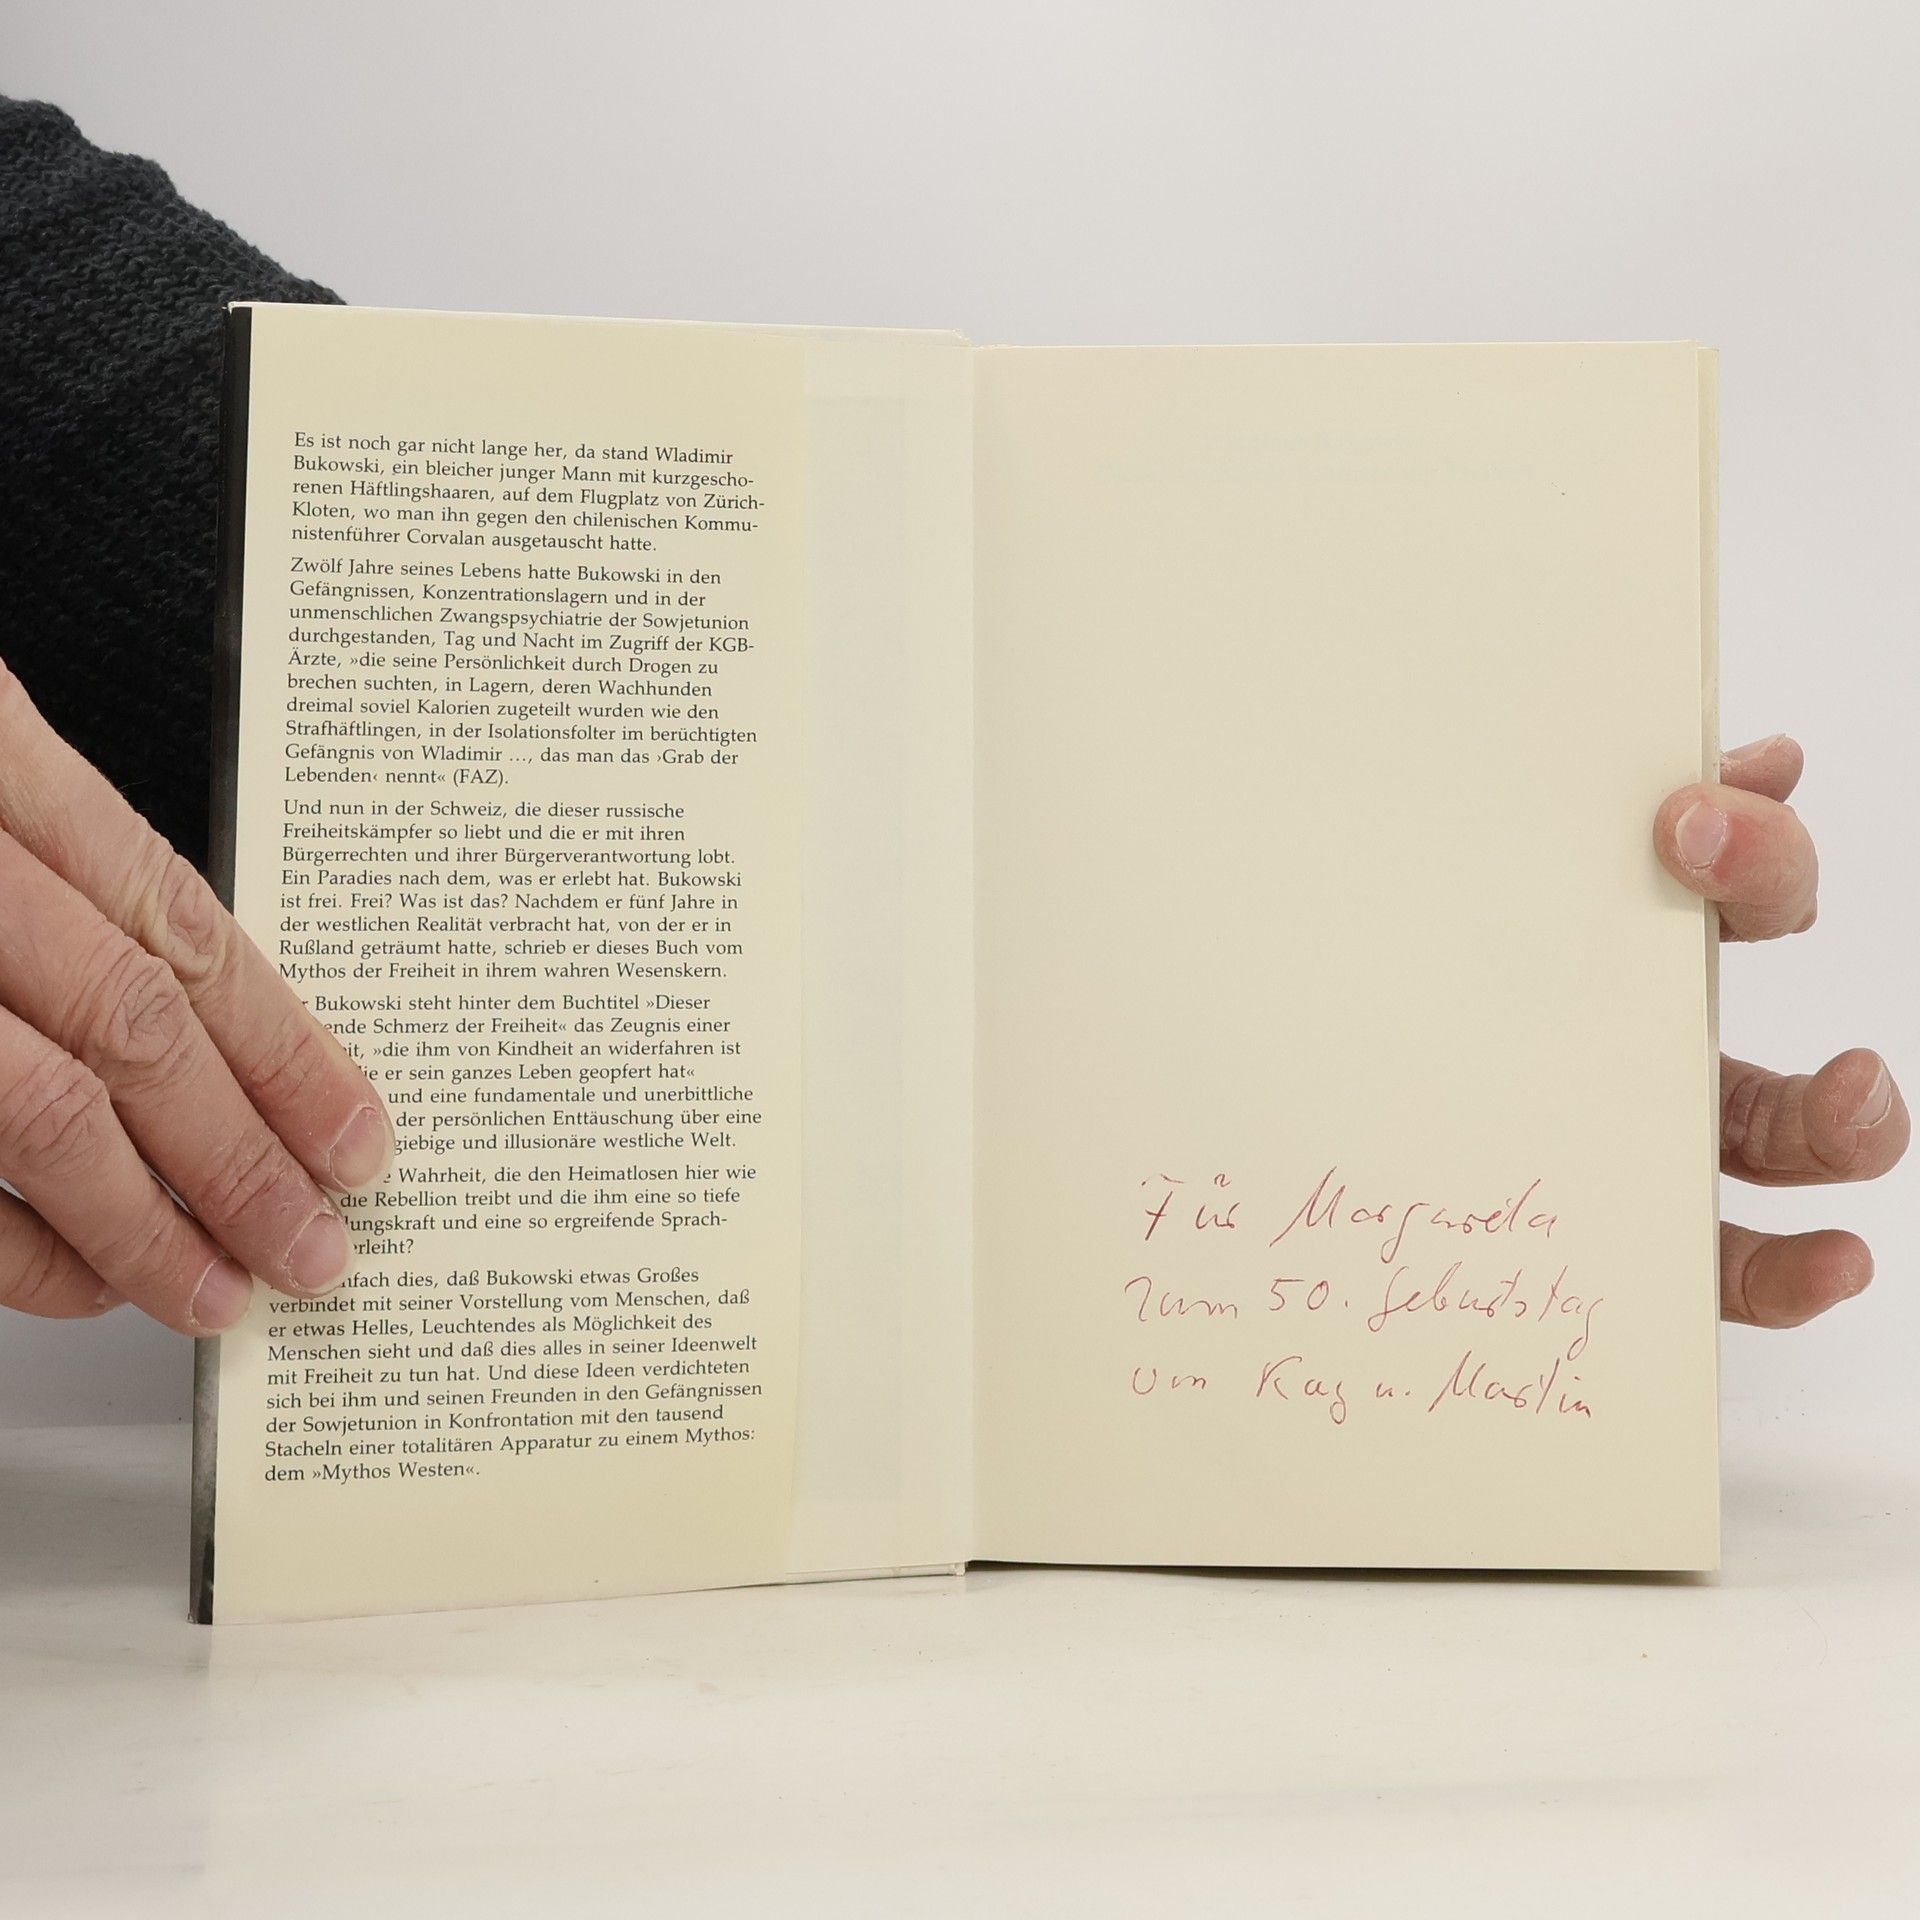 Es ist noch gar nicht lange her, da stand Wladimir
Bukowski, ein bleicher junger Mann mit kurzgescho-
renen Häftlingshaaren, auf dem Flugplatz von Zürich-
Kloten, wo man ihn gegen den chilenischen Kommu-
nistenführer Corvalan ausgetauscht hatte.
Zwölf Jahre seines Lebens hatte Bukowski in den
Gefängnissen, Konzentrationslagern und in der
unmenschlichen Zwangspsychiatrie der Sowjetunion
durchgestanden, Tag und Nacht im Zugriff der KGB-
Ärzte, »die seine Persönlichkeit durch Drogen zu
brechen suchten, in Lagern, deren Wachhunden
dreimal soviel Kalorien zugeteilt wurden wie den
Strafhäftlingen, in der Isolationsfolter im berüchtigten
Gefängnis von Wladimir ..., das man das ›Grab der
Lebenden‹ nennt« (FAZ).
Und nun in der Schweiz, die dieser russische
Freiheitskämpfer so liebt und die er mit ihren
Bürgerrechten und ihrer Bürgerverantwortung lobt.
Ein Paradies nach dem, was er erlebt hat. Bukowski
ist frei. Frei? Was ist das? Nachdem er fünf Jahre in
der westlichen Realität verbracht hat, von der er in
Rußland geträumt hatte, schrieb er dieses Buch vom
Mythos der Freiheit in ihrem wahren Wesenskern.
Bukowski steht hinter dem Buchtitel »Dieser
Schmerz der Freiheit« das Zeugnis einer
»die ihm von Kindheit an widerfahren ist
er sein ganzes Leben geopfert hat«
und eine fundamentale und unerbittliche
der persönlichen Enttäuschung über eine
giebige und illusionäre westliche Welt.
Wahrheit, die den Heimatlosen hier wie
die Rebellion treibt und die ihm eine so tiefe
lungskraft und eine so ergreifende Sprach-
erleiht?
nfach dies, daß Bukowski etwas Großes
verbindet mit seiner Vorstellung vom Menschen, daß
er etwas Helles, Leuchtendes als Möglichkeit des
Menschen sieht und daß dies alles in seiner Ideenwelt
mit Freiheit zu tun hat. Und diese Ideen verdichteten
sich bei ihm und seinen Freunden in den Gefängnissen
der Sowjetunion in Konfrontation mit den tausend
Stacheln einer totalitären Apparatur zu einem Mythos:
dem »Mythos Westen«.
Für Margaréta
zum 50. Geburtstag
von Kay u. Martin